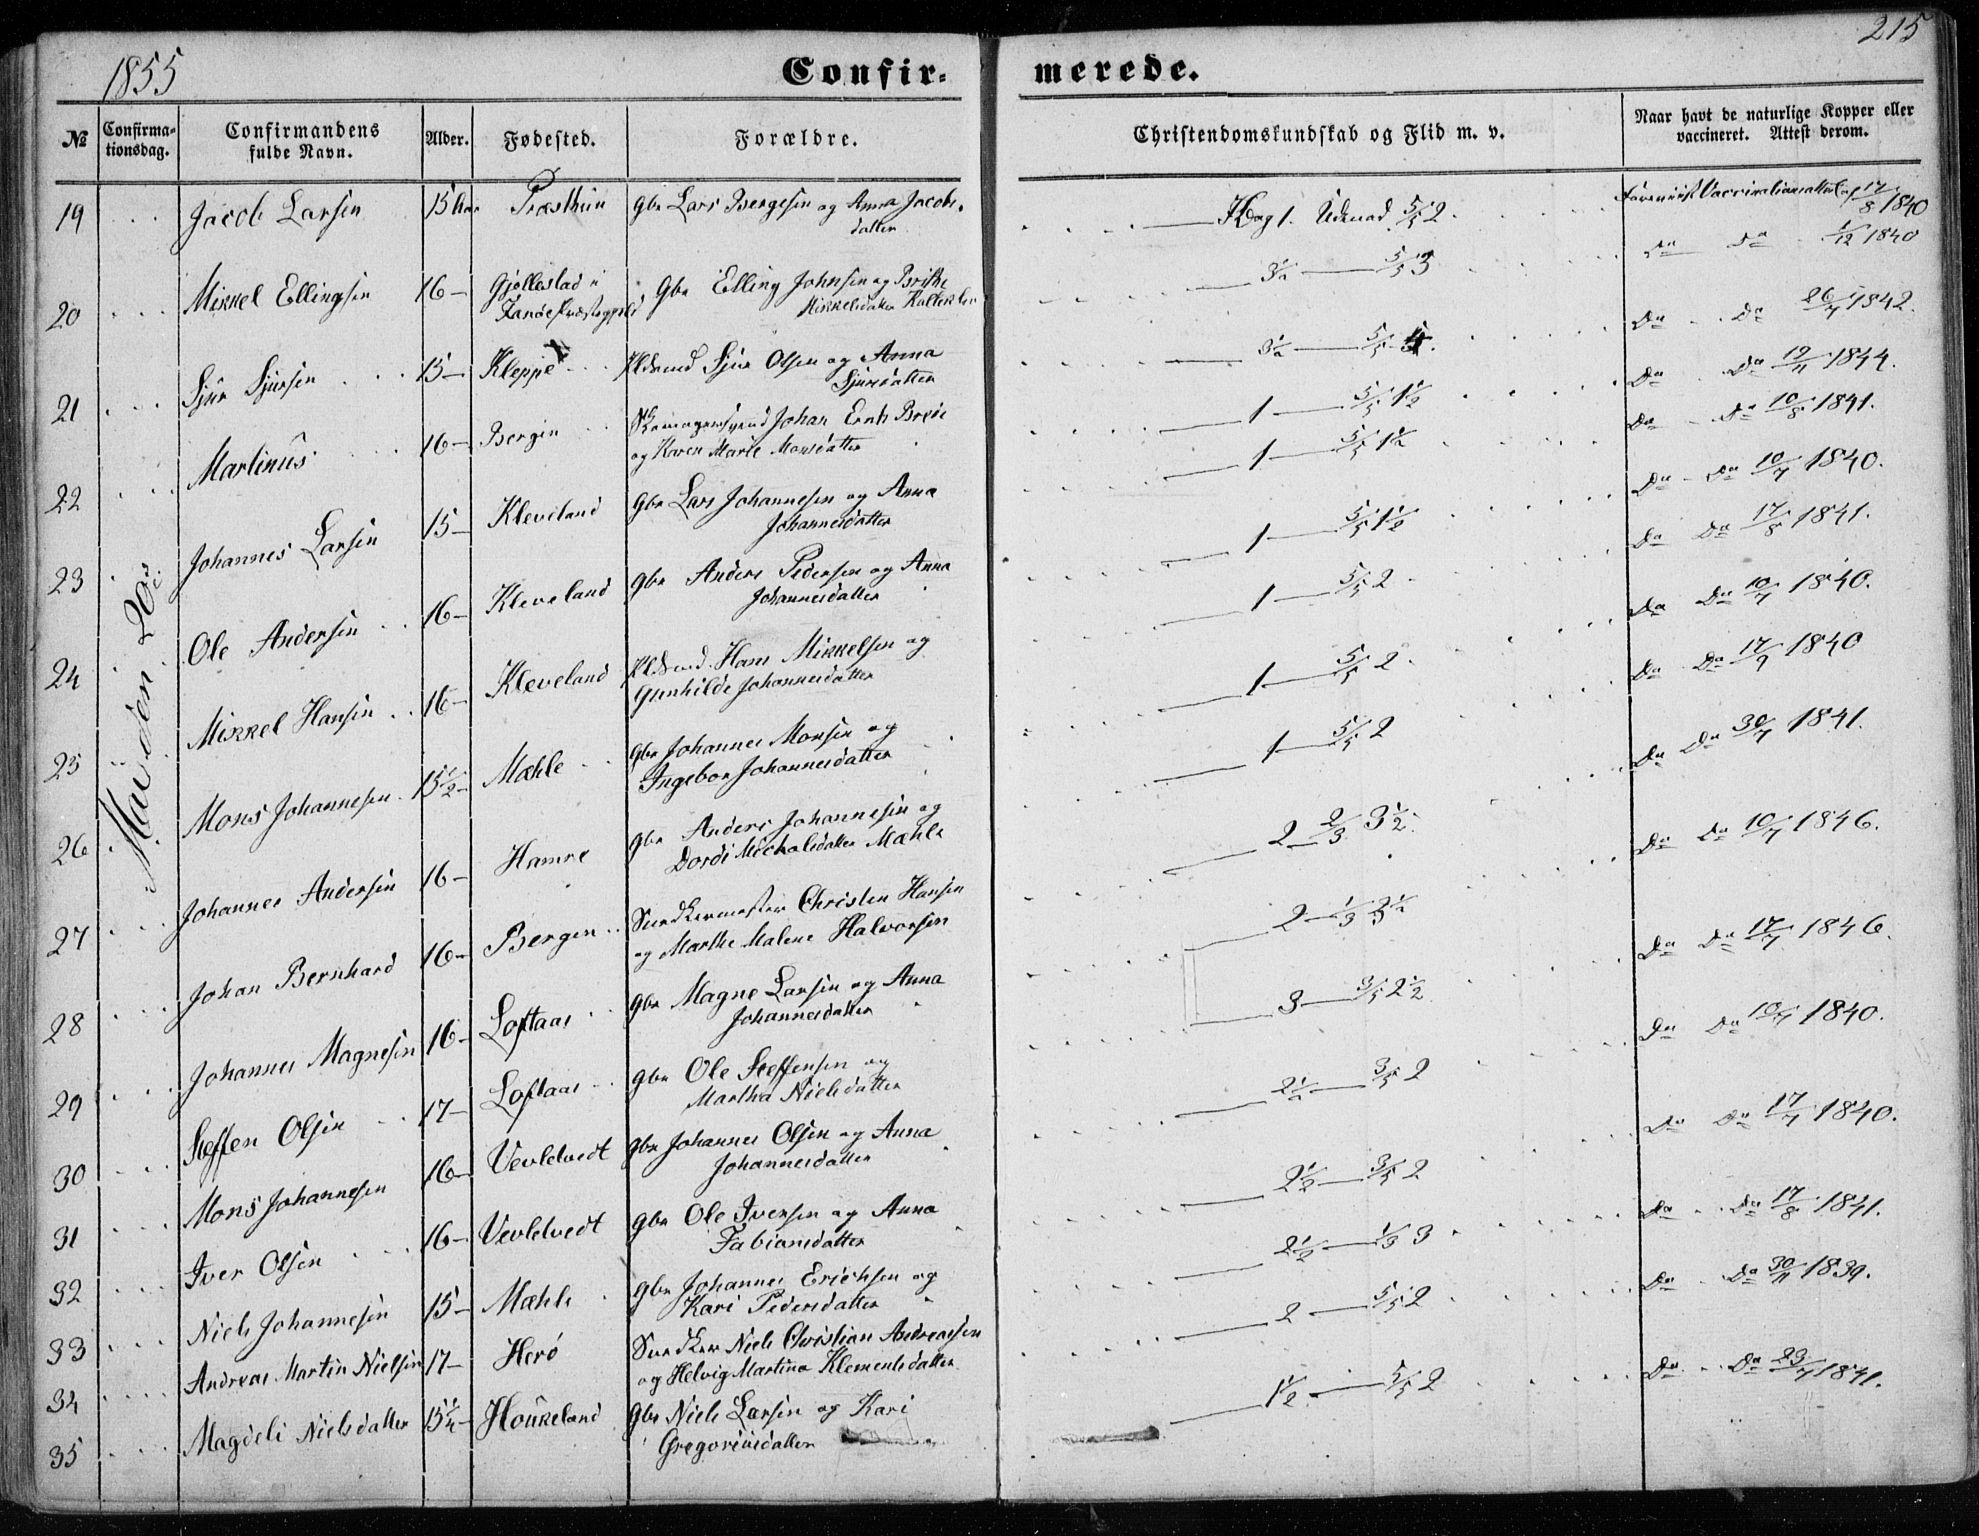 1855
215
Confir-
merede.
№
Confirma-
tionsdag.
Confirmandens
fulde Navn.
Alder.
Fødested.
Forældre.
Christendomskundskab og Flid m. v.
Naar havt de naturlige Kopper eller
vaccineret. Attest derom.
Mai den 20de
19 Jacob Larsen 15 Præsthun Gbr Lars Bergesen og Anna Jacobs-
datter
Kbog 1. Udenad 5/5 2 Vaccinationsattest af 17/8 1840
20 Mikkel Ellingsen 16 Gjøllestad i
Fanøe Præstegjeld
Gbr Elling Johnsen og Brithe
Mikkelsdatter
3½ 5/5 3 Do Do 1/12 1840
21 Sjur Sjursen 15 Kleppe Sjur Olsen og Anna
Sjursdatter
3½ 5/5 Do Do 26/7 1842.
22 Martinus 16 Bergen Johan
og Karen Marie Monsdatter
1 5/5 1½ Do Do 12/11 1844.
23 Johannes Larsen 15 Kleveland Gbr Lars Johannesen og Anna
Johannesdatter
1 5/5 1½ Do Do 10/8 1841.
24 Ole Andersen 16 Kleveland Gbr Anders Pedersen og Anna
Johannesdatter
1 5/5 1½ Do Do 10/7 1840.
25 Mikkel Hansen 16 Kleveland Hans Mikkelsen og
Gunhilde Johannesdatter
1 5/5 2 Do Do 17/8 1841.
26 Mons Johannesen 15½ Mæhle Gbr Johannes Monsen og
Ingebor Johannesdatter
1 5/5 2 Do Do 10/7 1840.
27 Johannes Andersen 16 Hamre Gbr Anders Johannesen og
Dordi Michelsdatter Mæhle
1 5/5 2 Do Do 17/9 1840
28 Johan Bernhard 16 Bergen Christen Hansen
og Marthe Malene Halvorsen
2 2/3 3½ Do Do 30/7 1841.
29 Johannes Magnesen 16 Loftaas Gbr Magne Larsen og Anna
Johannesdatter
2 1/3 3½ Do Do 10/7 1846.
30 Steffen Olsen 17 Loftaas Gbr Ole Steffensen og
Martha Nielsdatter
3 3/5 2½ Do Do 17/7 1846.
31 Mons Johannesen 16 Vevletvedt Gbr Johannes Olsen og Anna
Johannesdatter
2½ 3/5 2 Do Do 10/7 1840.
32 Iver Olsen 16 Vevletvedt Gbr Ole Iversen og Anna
Fabiansdatter
2½ 3/5 2 Do Do 17/7 1840.
33 Niels Johannesen 15 Mæhle Gbr Johannes Erichsen og
Kari Pedersdatter
2½ 1/3 3 Do Do 17/8 1841.
34 Andreas Martin Nielsen 17 Herø Niels Christian Andreasen
og Helvig Martina Klementsdatter
2 5/5 2 Do Do 30/11 1839.
35 Magdeli Nielsdatter 15¼ Houkeland Gbr Niels Larsen og Kari
Gregoriusdatter
1½ 5/5 2 Do Do 23/7 1841.